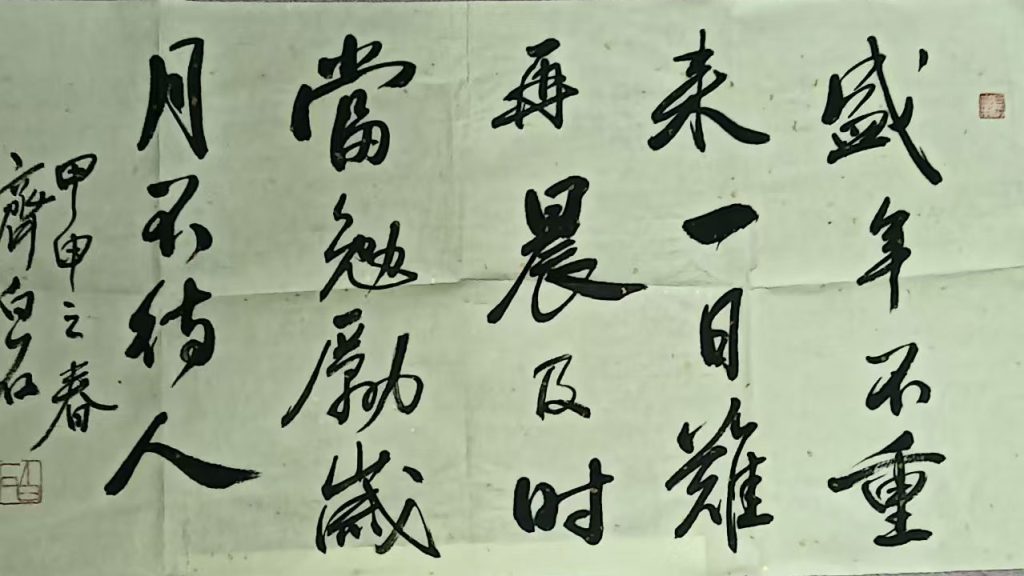 盛年不重
来一日難
再晨及时
當勉勵歲
月不待人
甲申之春
齊白石